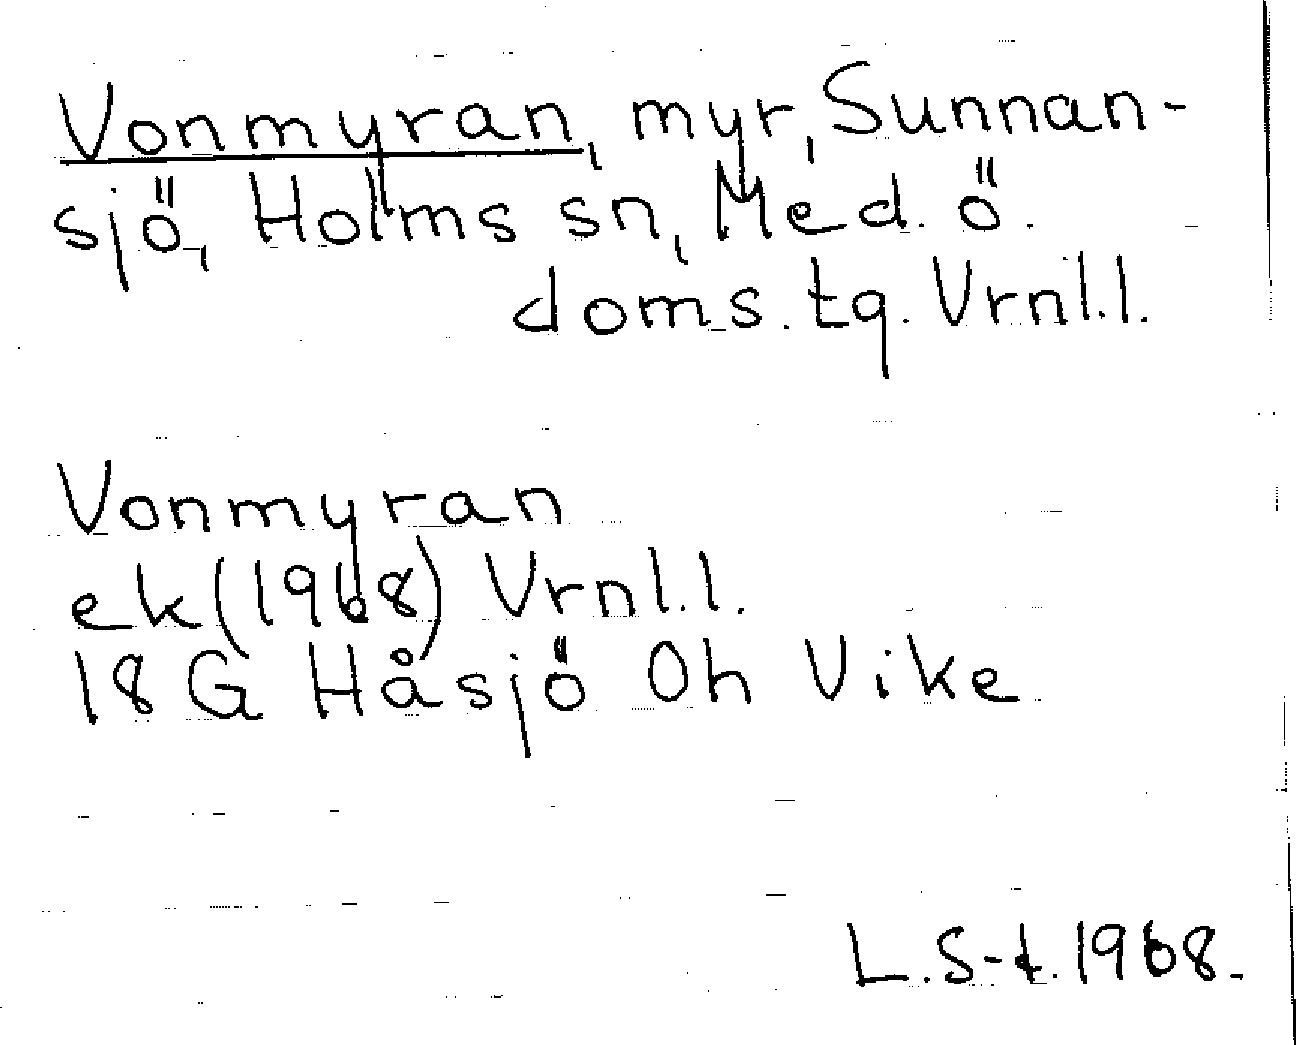 Vonmyran, myr, Sunnan-
sjö, Holms sn, Med. ö.
doms. tg. Vrnl.l.
Vonmyran
ek (1968) Vrnl.l.
18 G Håsjö Oh Vike
L.S-t. 1968.